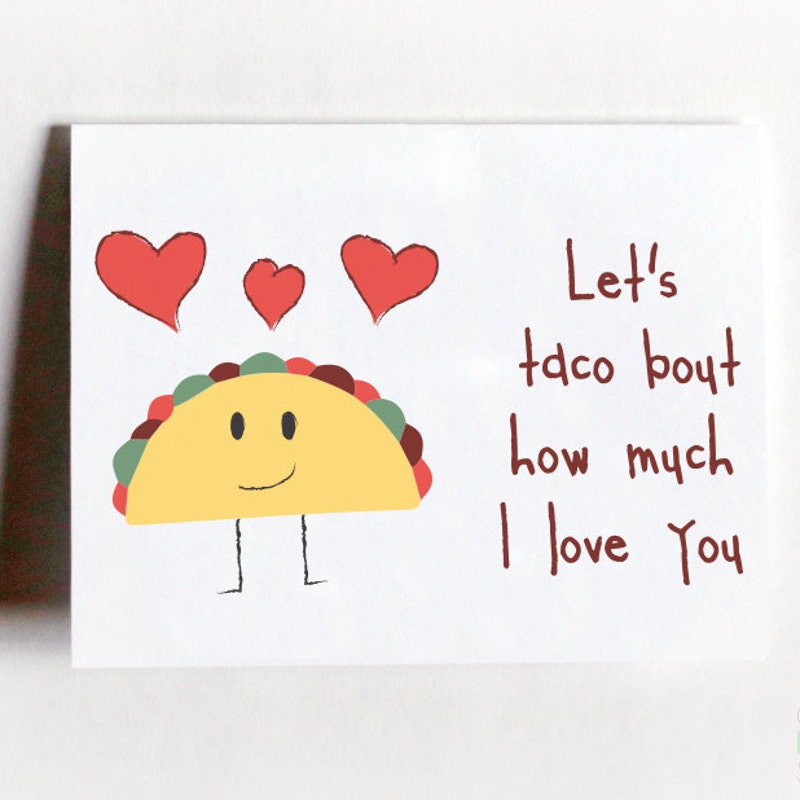 Let's
taco bout
how much
I love You